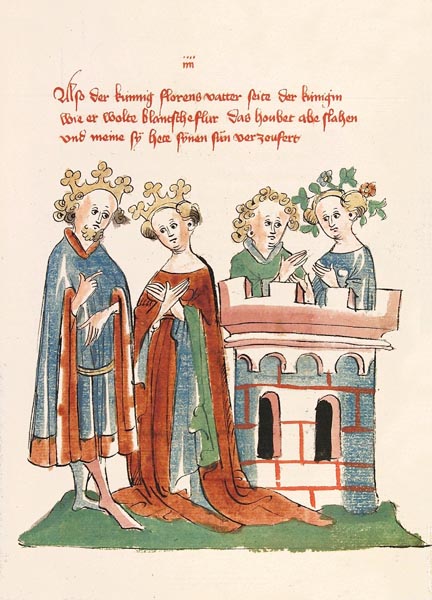 iiii
Also der kunnig florens vatter seite der kunigin
wie er wolte blantscheflur das houbet abe slahen
und meine sy hette synen sun verzoufert